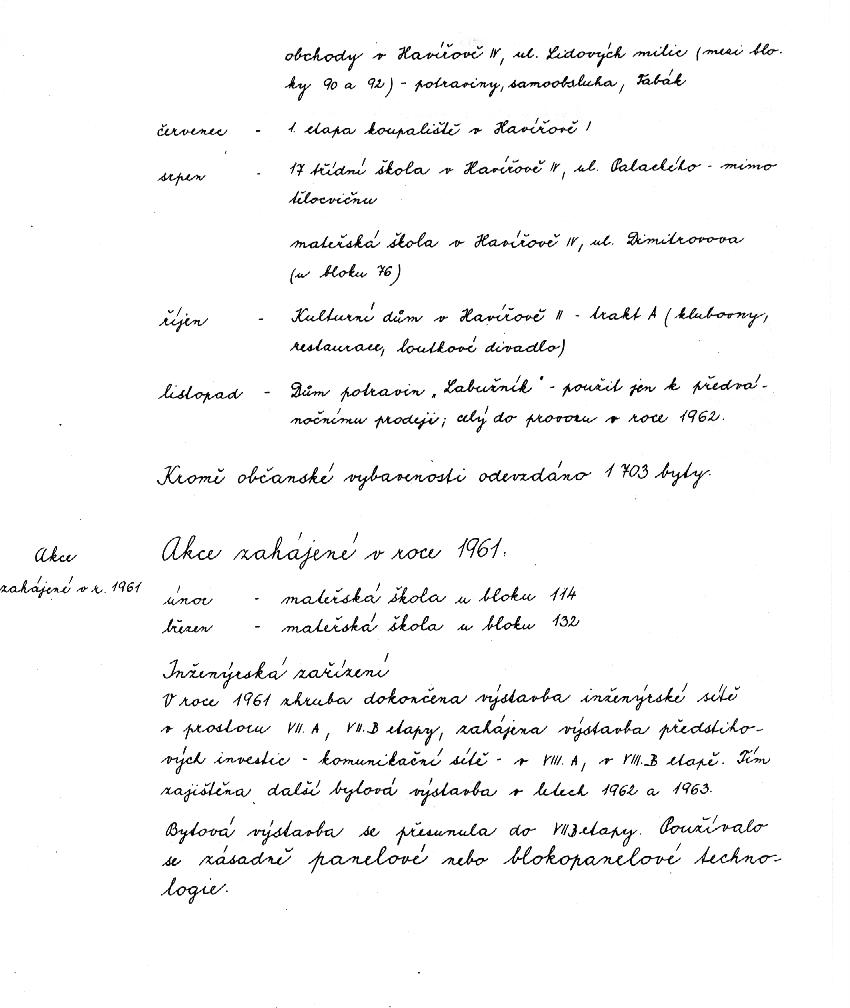 obchody v Havířově IV, ul. Lidových milic (mezi blo-
ky 90 a 92) - potraviny, samoobsluha, Tabák
červenec - 1. etapa koupaliště v Havířově I
srpen - 17 třídní škola v Havířově IV, ul. Palackého - mimo
tělocvičnu
mateřská škola v Havířově IV, ul. Dimitrovova
(u bloku 76)
říjen - Kulturní dům v Havířově II - trakt A (klubovny,
restaurace, loutkové divadlo)
listopad - Dům potravin „Labužník" - použit jen k předvá-
nočnímu prodeji; celý do provozu v roce 1962.
Kromě občanské vybavenosti odevzdáno 1 703 byty.
Akce
zahájené v r. 1961
Akce zahájené v roce 1961.
únor - mateřská škola u bloku 114
březen - mateřská škola u bloku 132
Inženýrská zařízení
V roce 1961 zhruba dokončena výstavba inženýrské sítě
v prostoru VII. A, VII. B etapy, zahájena výstavba předstiho-
vých investic - komunikační sítě - v VIII. A, v VIII. B etapě. Tím
zajištěna další bytová výstavba v letech 1962 a 1963.
Bytová výstavba se přesunula do VII B etapy. Používalo
se zásadně panelové nebo blokopanelové techno-
logie.